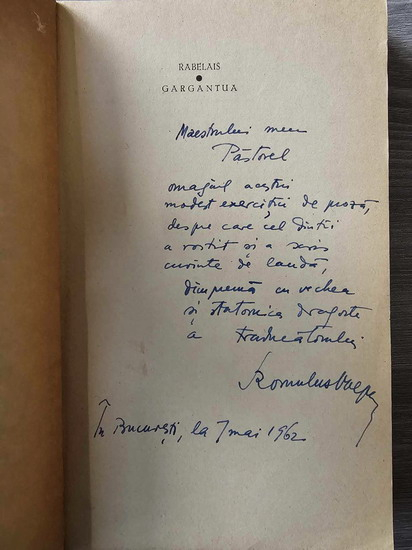 RABELAIS
GARGANTUA
Maestrului meu
Păstorel
omagiul acestui
modest exercițiu de proză,
despre care cel dintîi
a rostit și a scris
cuvinte de laudă,
dimpreună cu vechea
și statornica dragoste
a traducătorului
Romulus Vulpescu
În București, la 7 mai 1962